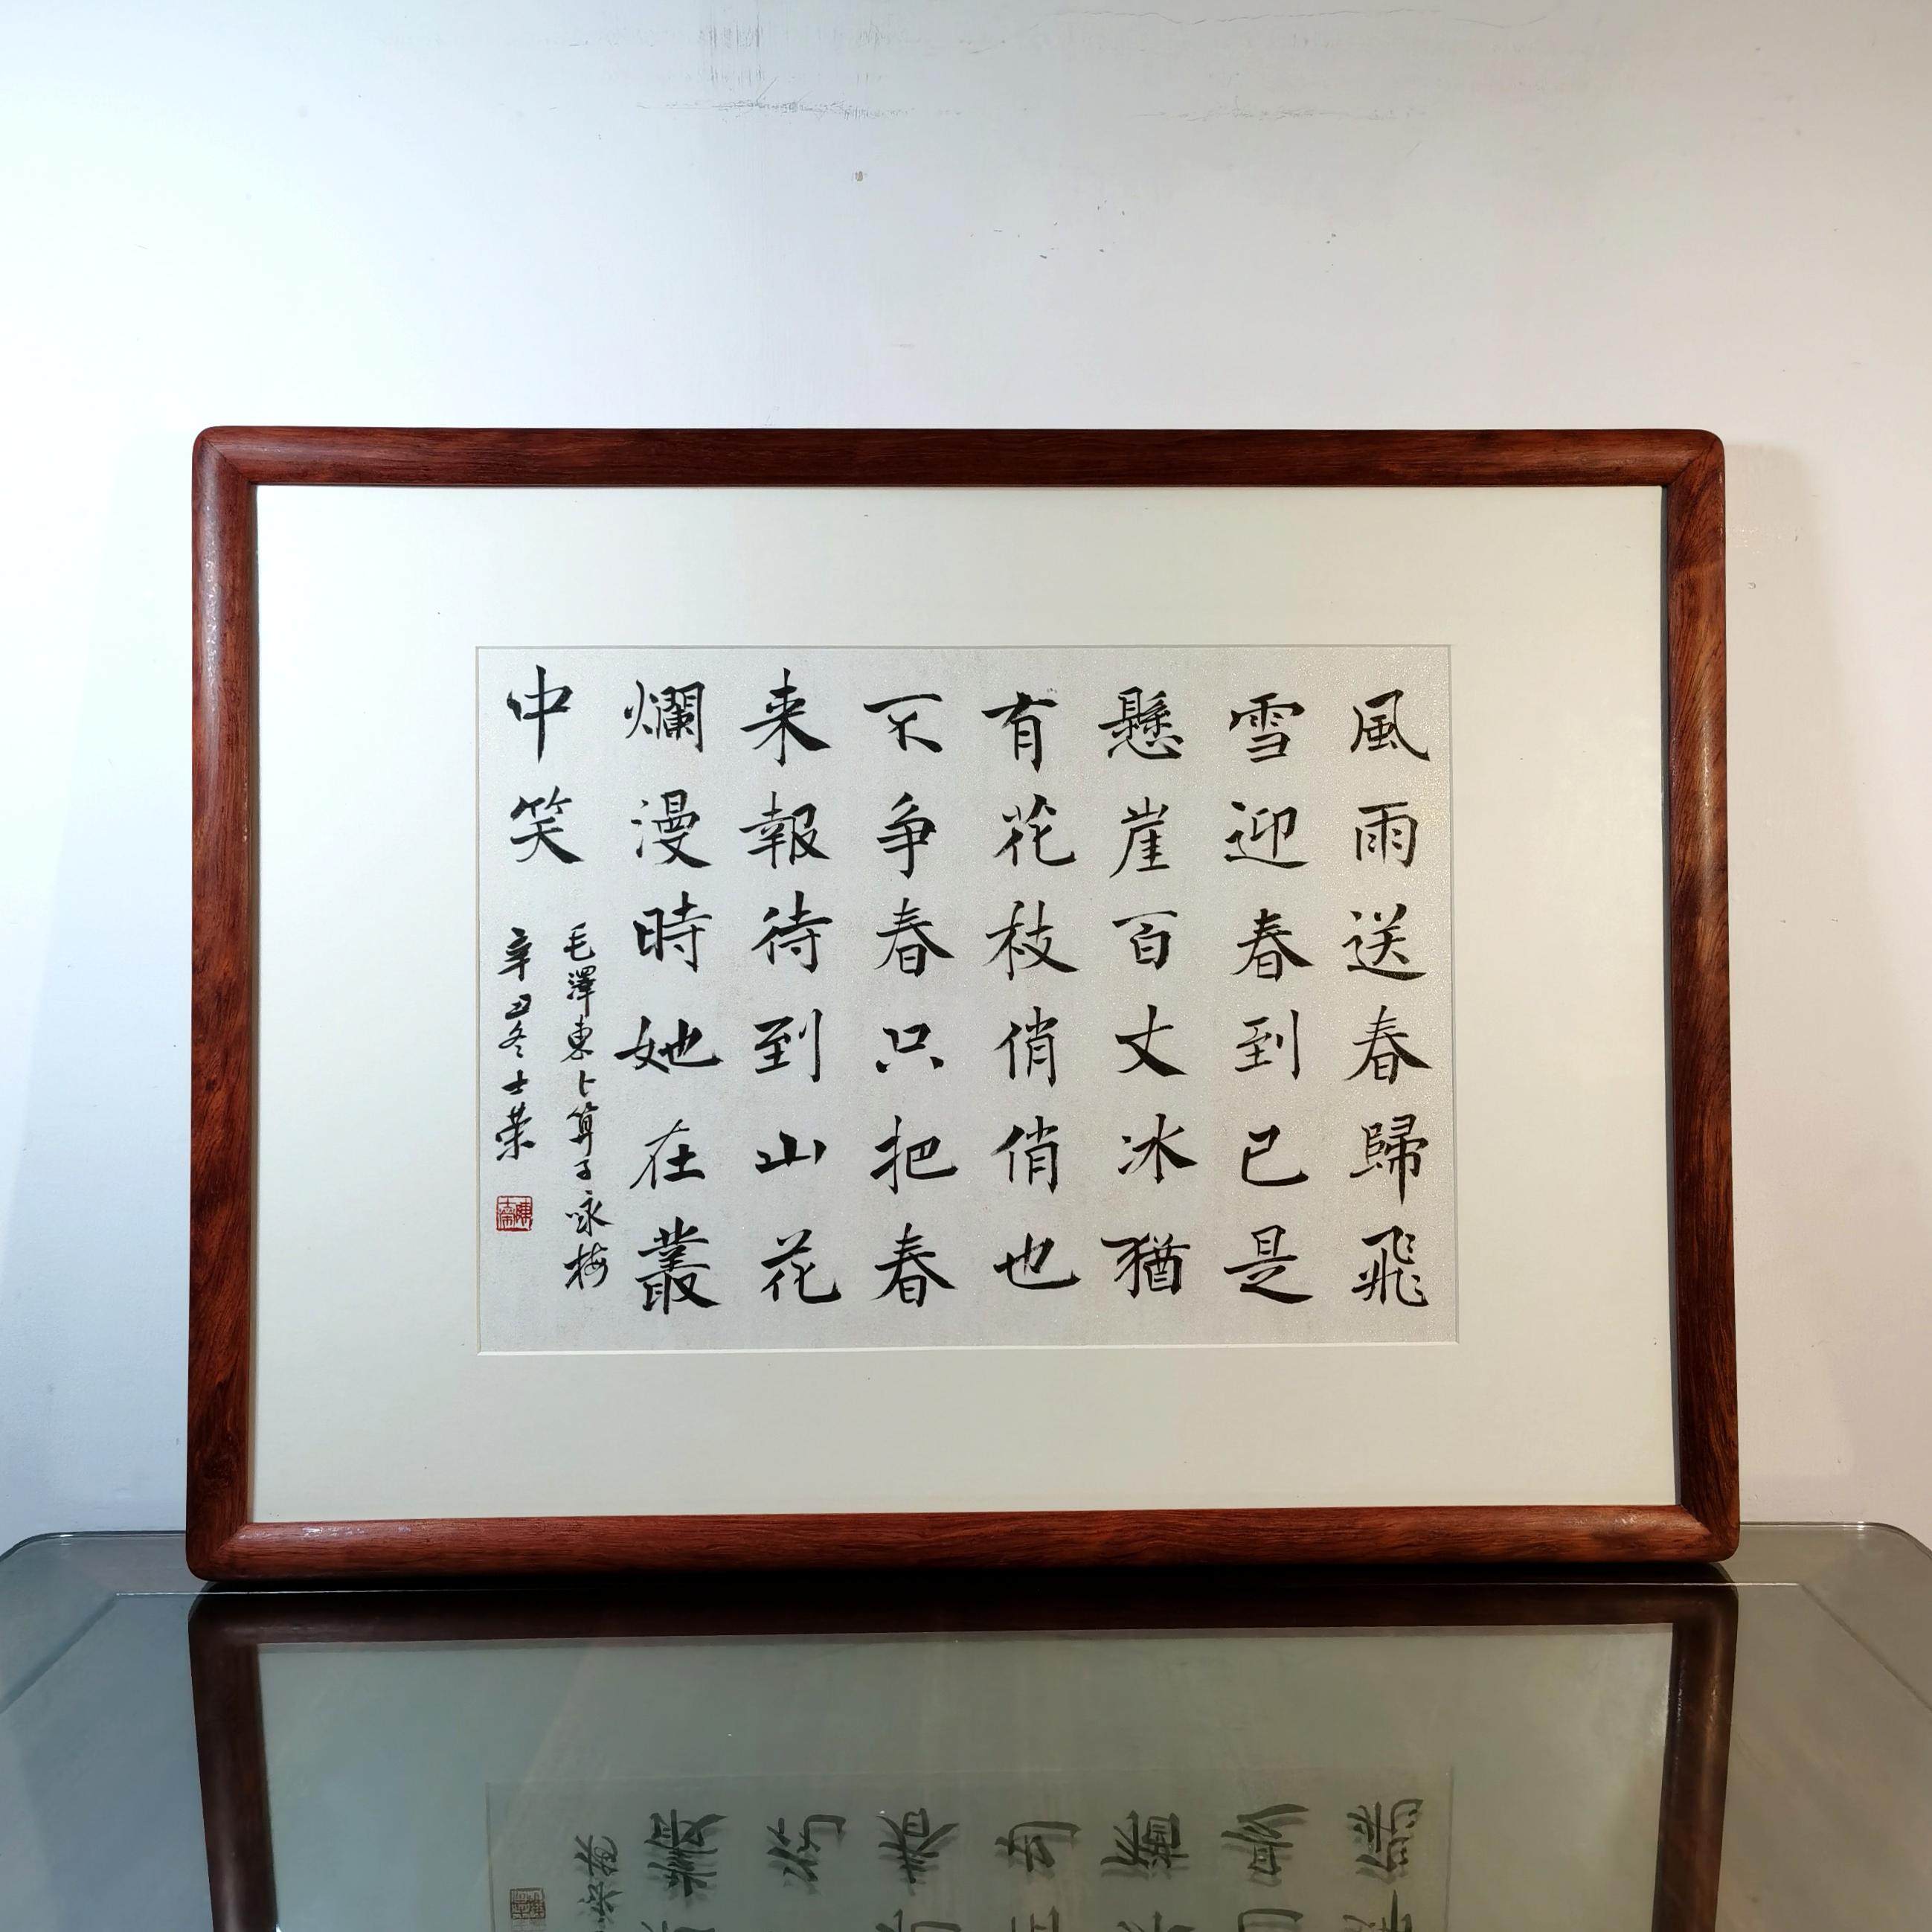 風雨送春歸飛
雪迎春到已是
懸崖百丈冰猶
有花枝俏俏也
不争春只把春
来報待到山花
爛漫時她在叢
中笑
毛澤東卜算子咏梅
辛丑冬士荣